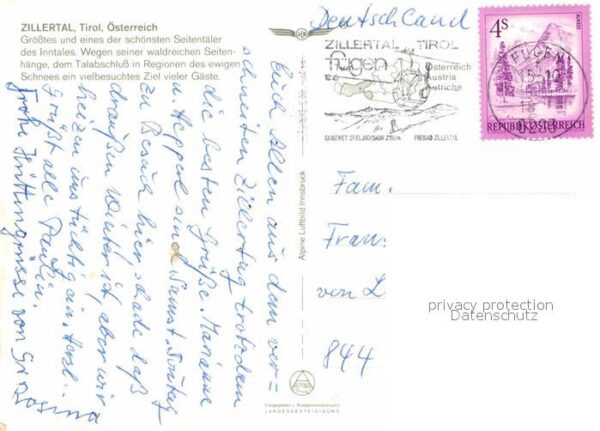 ZILLERTAL, Tirol, Österreich
Größtes und eines der schönsten Seitentäler
des Inntales. Wegen seiner waldreichen Seiten-
hänge, dem Talabschluß in Regionen des ewigen
Schnees ein vielbesuchtes Ziel vieler Gäste.
Euch Allen aus dem ver=
schneiten Zillertag trotzdem
die besten Grüße. Mariane
u. sind Samst. Sontag
zu Besuch hier schade daß
draußen Winter ist, aber wir
heizen uns tüchtig ein.
Grüßt alle
Frohe von
Alpine Luftbild Innsbruck
ALPINE
LANDESVERTEIDIGUNG
Deutschland
ZILLERTAL TIROL
Fügen
Österreich
Austria
Autriche
SKIGEBIET SPIELJOCHBAHN FREIBAD ZILLERTAL
4S
REPUBLIK ÖSTERREICH
FÜGEN
Fam.
Fran:
von L
844
privacy protection
Datenschutz